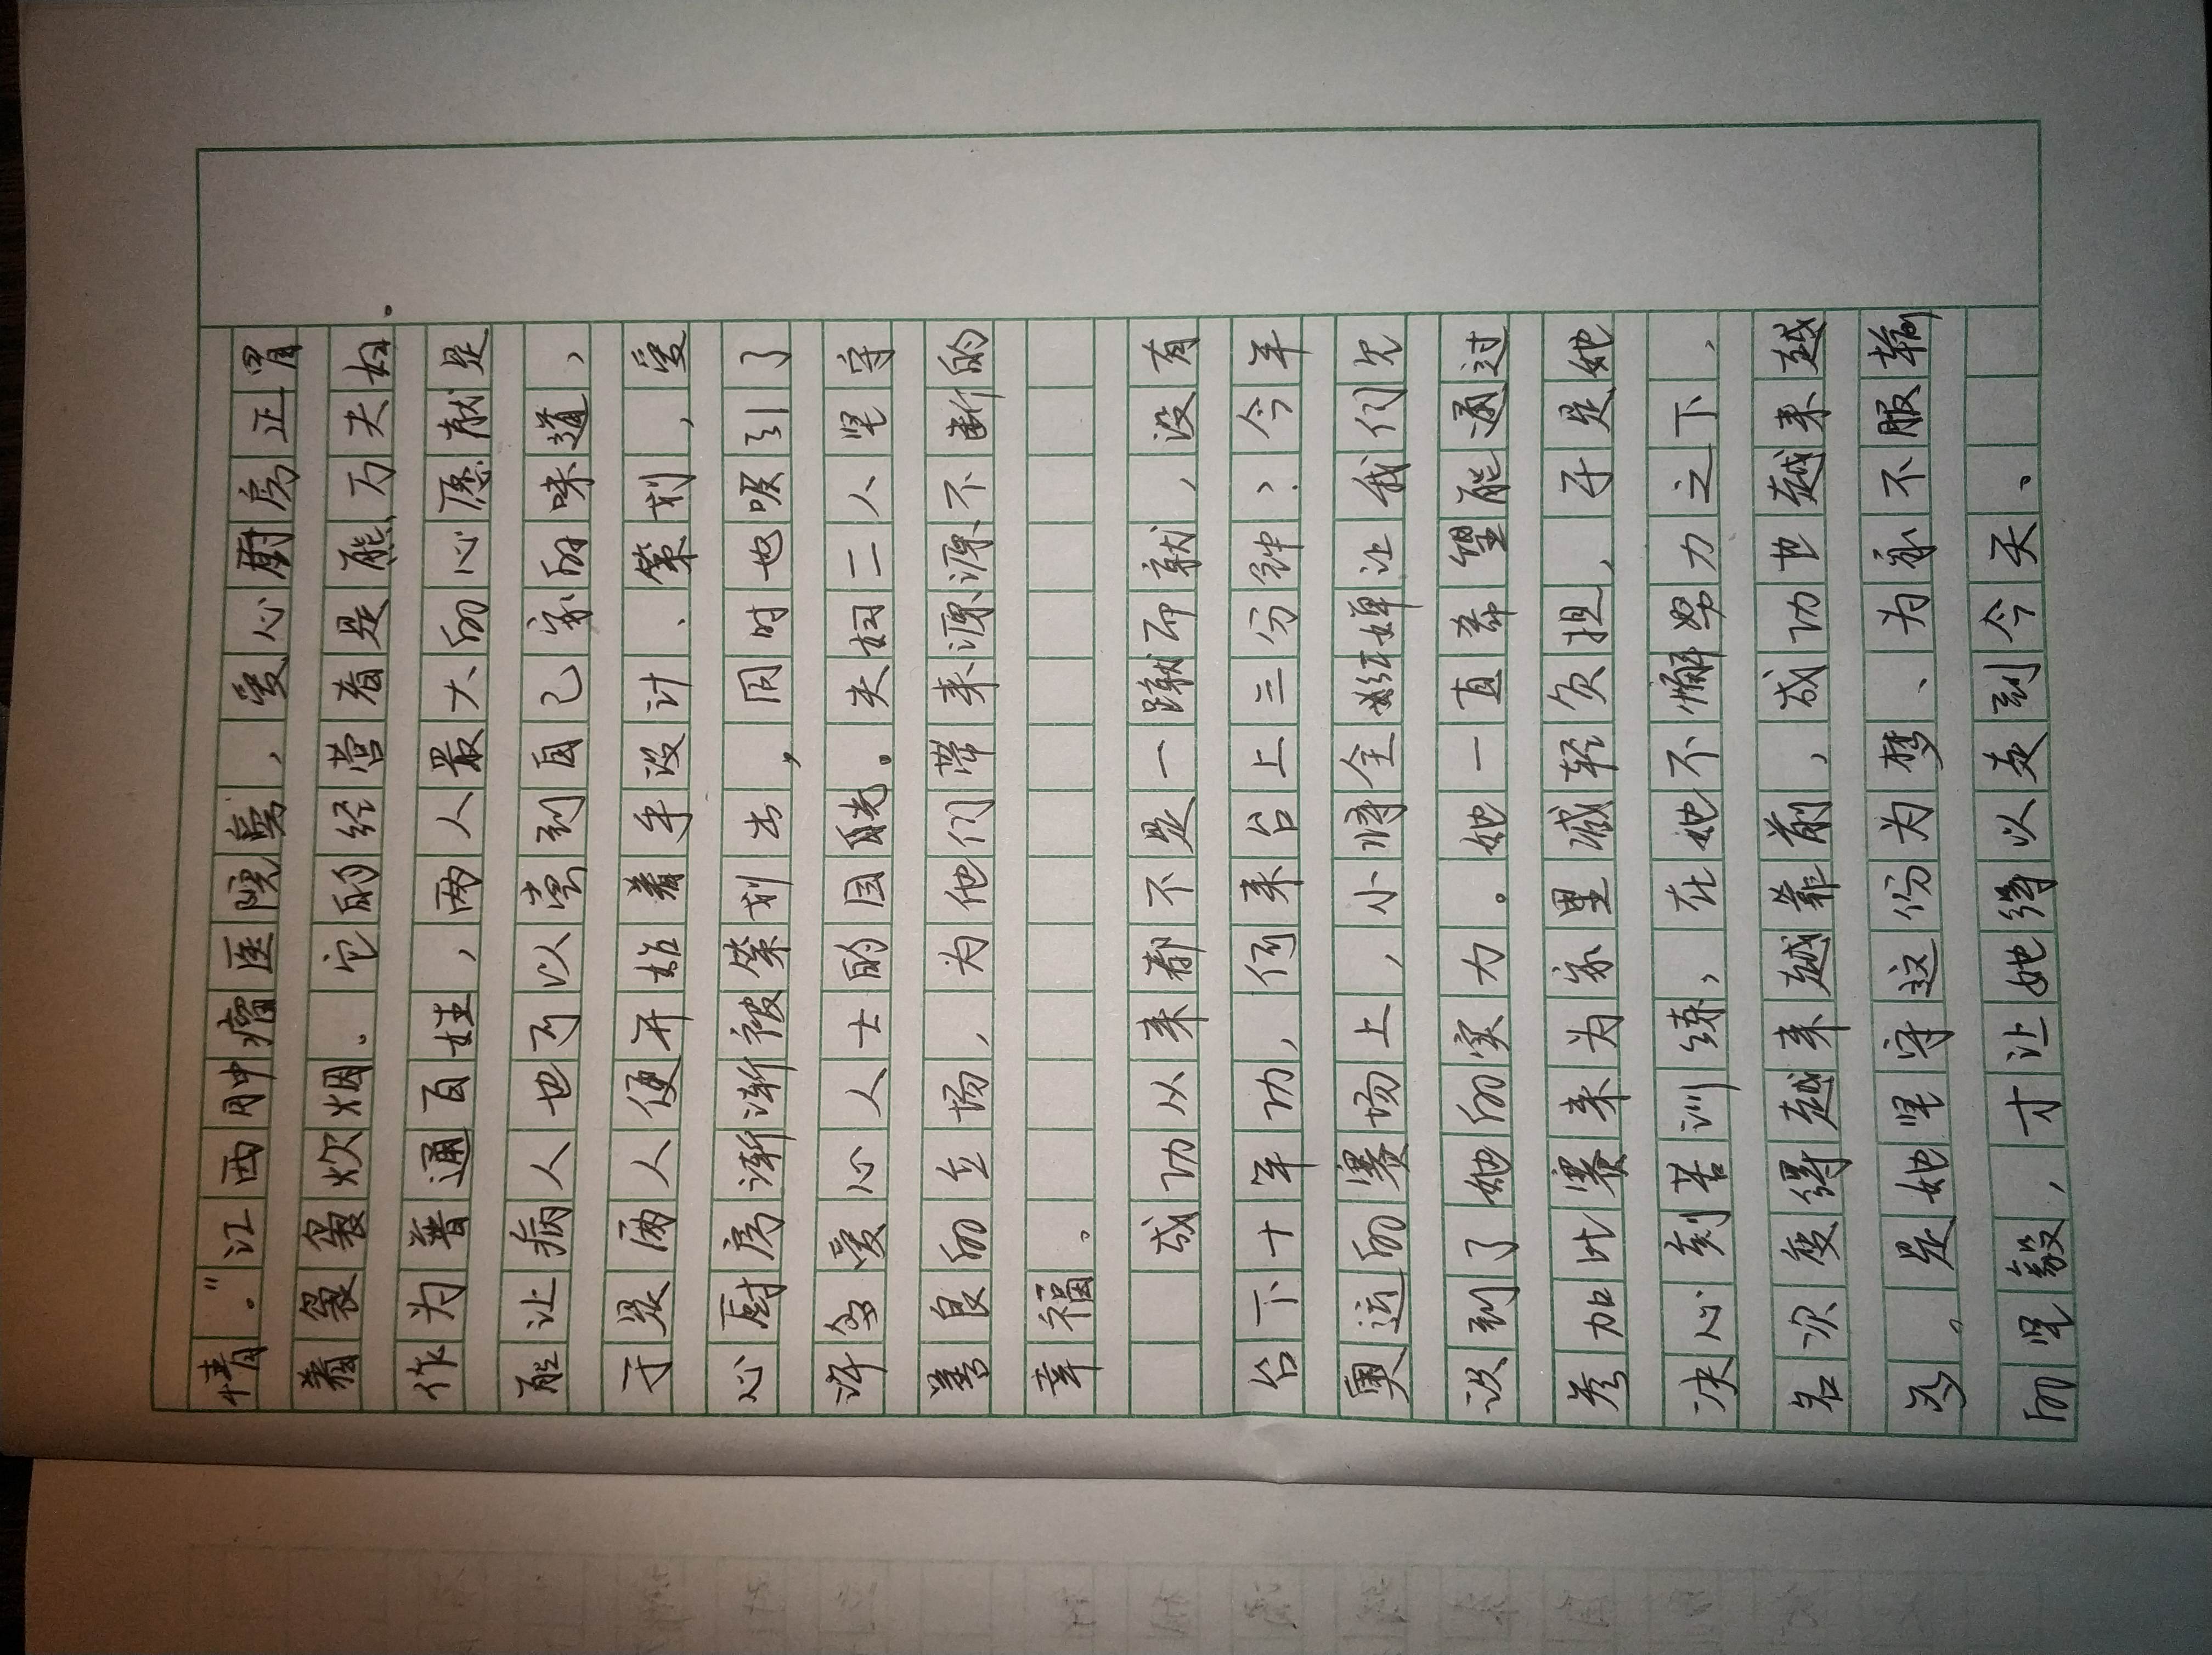 情。”江西肿瘤医院旁，爱心厨房正冒
着袅袅炊烟。它的经营者是熊、万夫妇。
作为普通百姓，两人最大的心愿就是
能让病人也可以尝到自己家的味道，
于是俩人便开始着手设计、策划，爱
心厨房渐渐被策划出，同时也吸引了
许多爱心人士的目光。夫妇二人坚守
善良的立场，为他们带来源源不断的
幸福。
成功从来都不是一蹴而就，没有
台下十年功，何来台上三分钟？今年
奥运的赛场上，小将全红婵让我们见
识到了她的实力。她一直希望能通过
参加比赛来为家里减轻负担，于是她
决心刻苦训练，在她不懈努力之下，
名次变得越来越靠前，成功也越来越
近。是她坚守这份为梦、为家不服输
的坚毅，才让她得以走到今天、